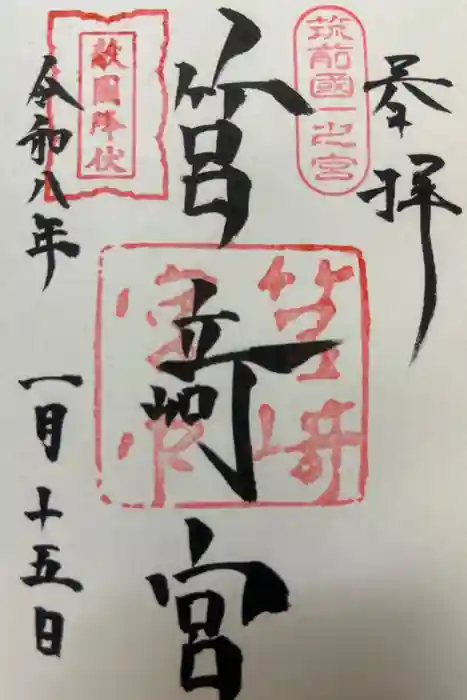 奉拝
筑前國一之宮
筥崎宮
筥崎宮印
敵國降伏
令和八年
一月十五日